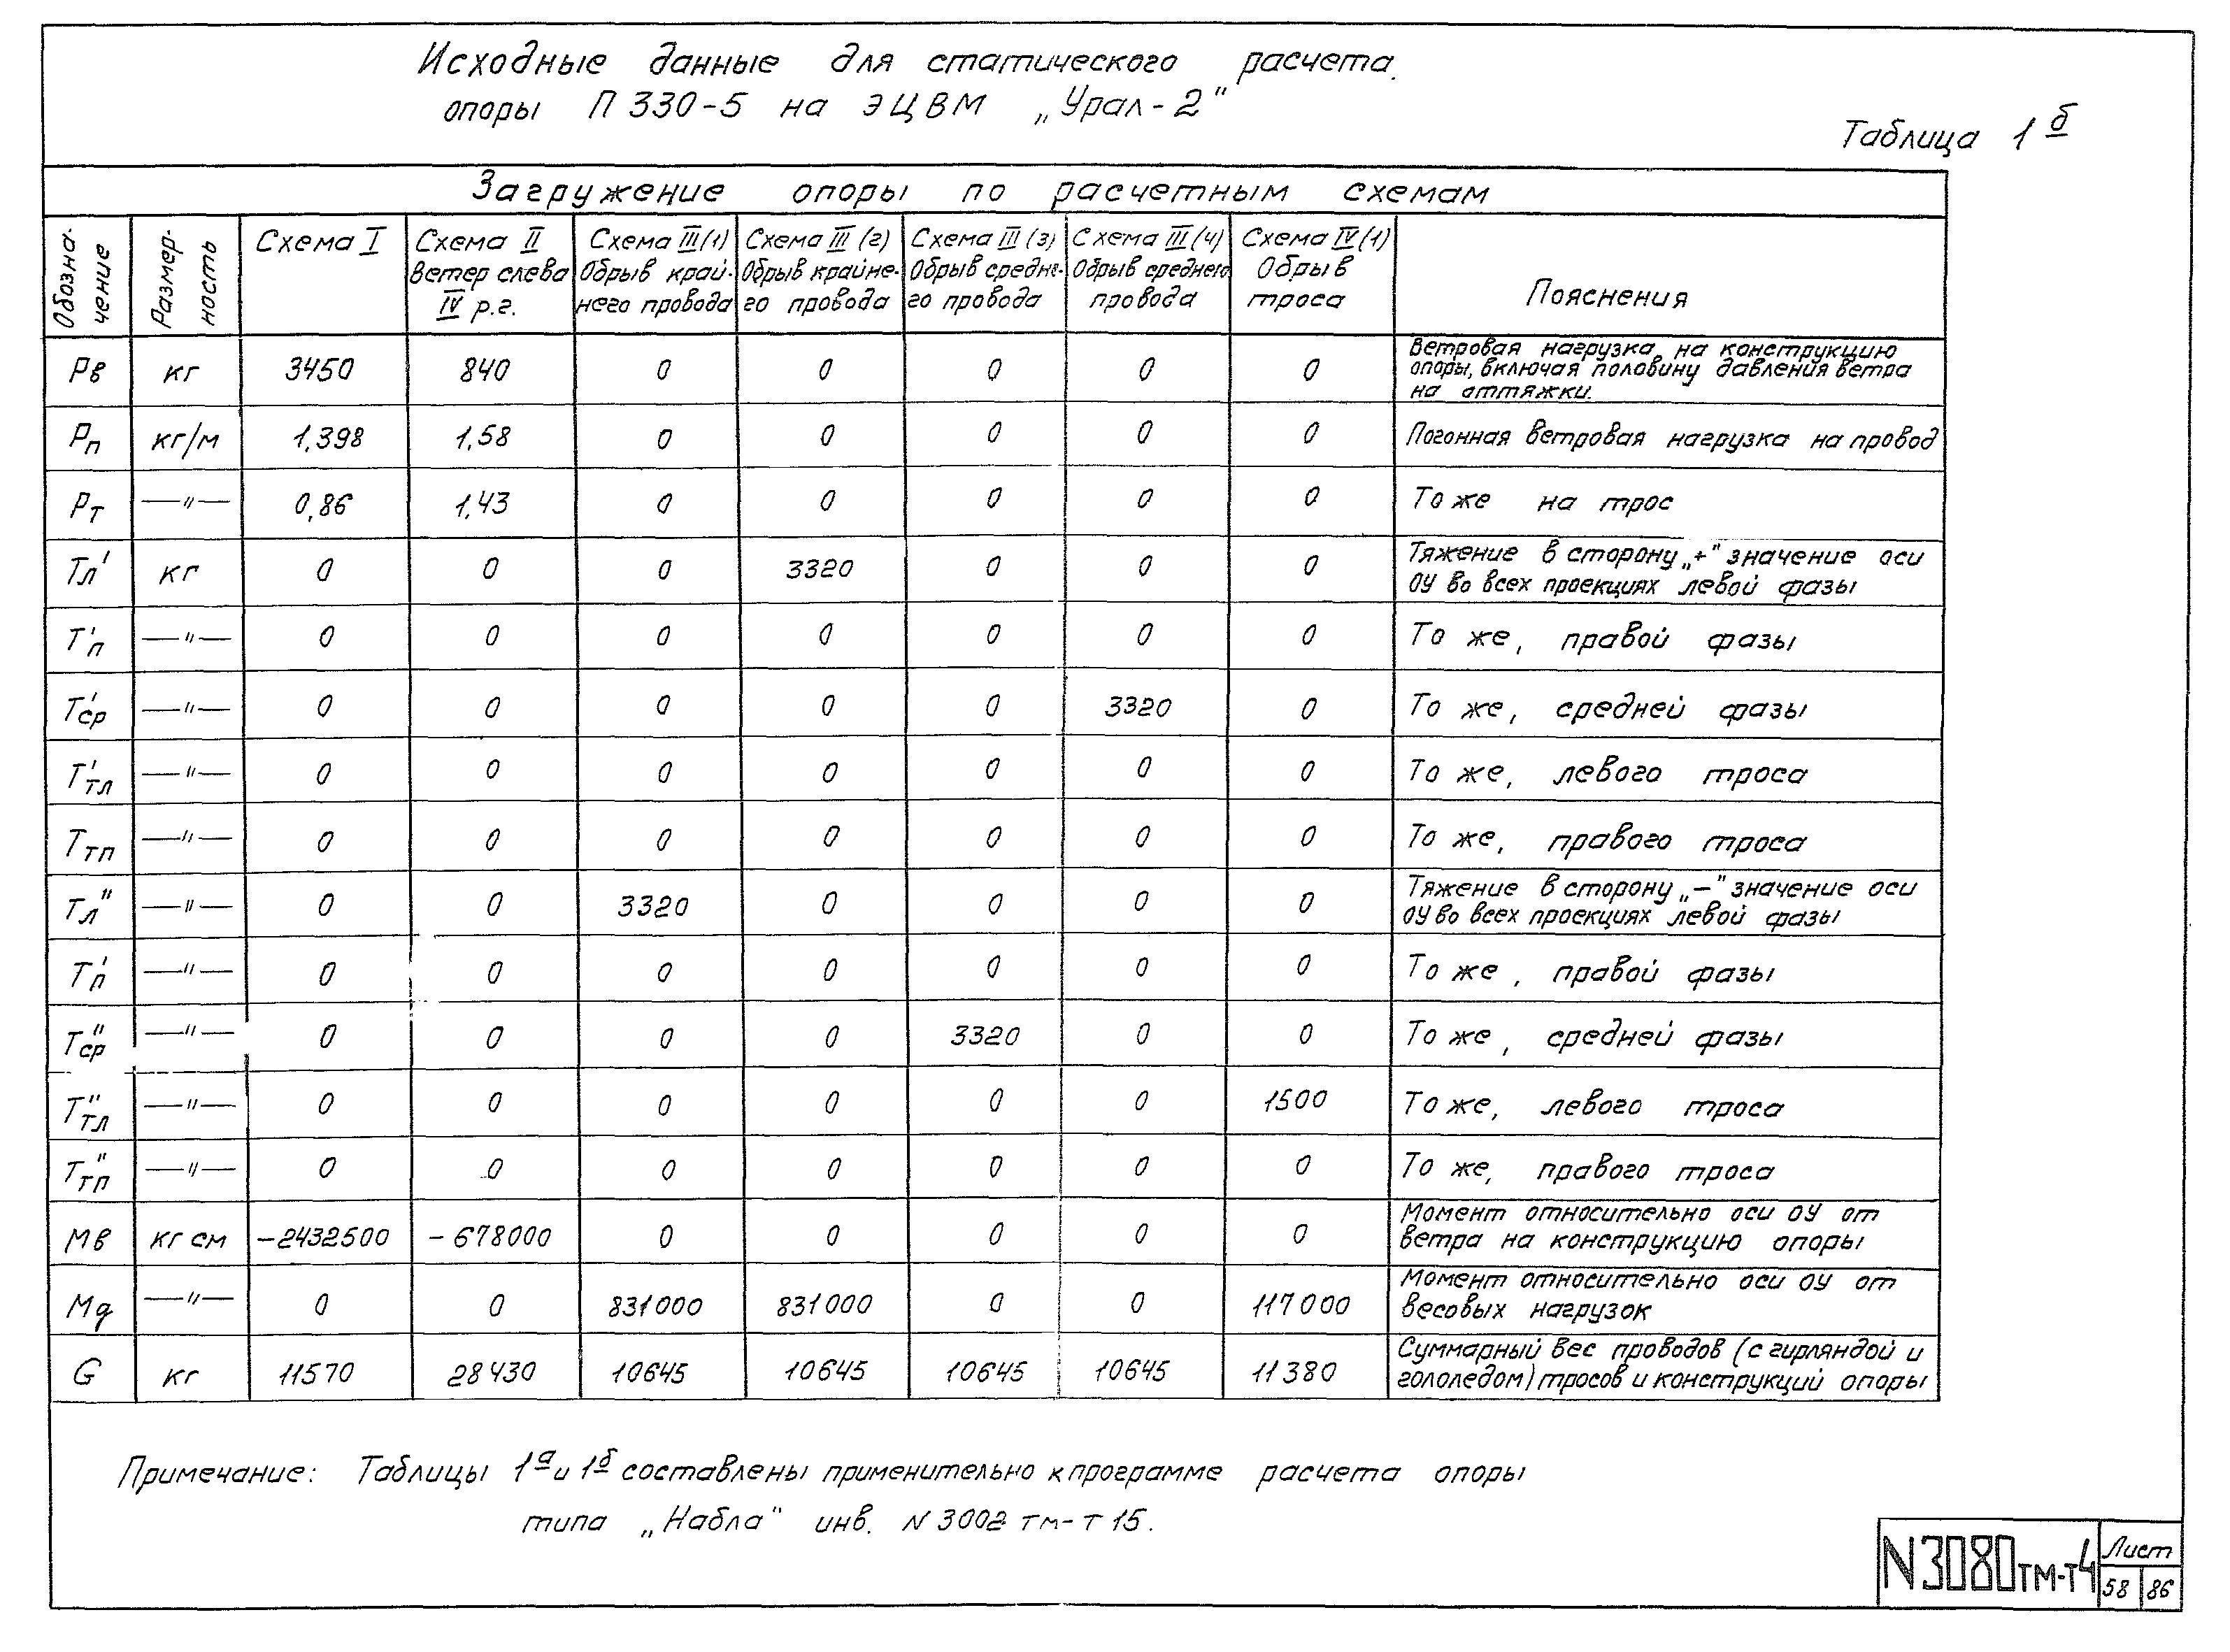 Исходные данные для статического расчета.
опоры П 330-5 на ЭЦВМ „Урал-2"
Таблица 1б
Загружение опоры по расчетным схемам
Обозна-
чение
Размер-
ность
Схема I
Схема II
Ветер слева
IV р.г.
Схема III (1)
Обрыв край-
него провода
Схема III (2)
Обрыв крайне-
го провода
Схема III (3)
Обрыв средне-
го провода
Схема III (4)
Обрыв среднего
провода
Схема IV (1)
Обрыв
троса
Пояснения
Рв кг 3450 840 0 0 0 0 0
Ветровая нагрузка на конструкцию
опоры, включая половину давления ветра
на оттяжки.
Рп кг/м 1,398 1,58 0 0 0 0 0 Погонная ветровая нагрузка на провод
Рт —"— 0,86 1,43 0 0 0 0 0 То же на трос
Тл' кг 0 0 0 3320 0 0 0
Тяжение в сторону „+" значение оси
ОУ во всех проекциях левой фазы
Т'п —"— 0 0 0 0 0 0 0 То же, правой фазы
Т'ср —"— 0 0 0 0 0 3320 0 То же, средней фазы
Т'тл —"— 0 0 0 0 0 0 0 То же, левого троса
Ттп —"— 0 0 0 0 0 0 0 То же, правого троса
Тл" —"— 0 0 3320 0 0 0 0
Тяжение в сторону „—" значение оси
ОУ во всех проекциях левой фазы
Т'п —"— 0 0 0 0 0 0 0 То же, правой фазы
Т"ср —"— 0 0 0 0 3320 0 0 То же, средней фазы
Т"тл —"— 0 0 0 0 0 0 1500 То же, левого троса
Т"тп —"— 0 0 0 0 0 0 0 То же, правого троса
Мв кг см -2432500 -678000 0 0 0 0 0
Момент относительно оси ОУ от
ветра на конструкцию опоры
Мq —"— 0 0 831000 831000 0 0 117000
Момент относительно оси ОУ от
весовых нагрузок
G кг 11570 28430 10645 10645 10645 10645 11380
Суммарный вес проводов (с гирляндой и
гололедом) тросов и конструкций опоры
Примечание: Таблицы 1а и 1б составлены применительно к программе расчета опоры
типа „Набла" инв. N 3002 тм-т 15.
N3080тм-т4
Лист
58 86